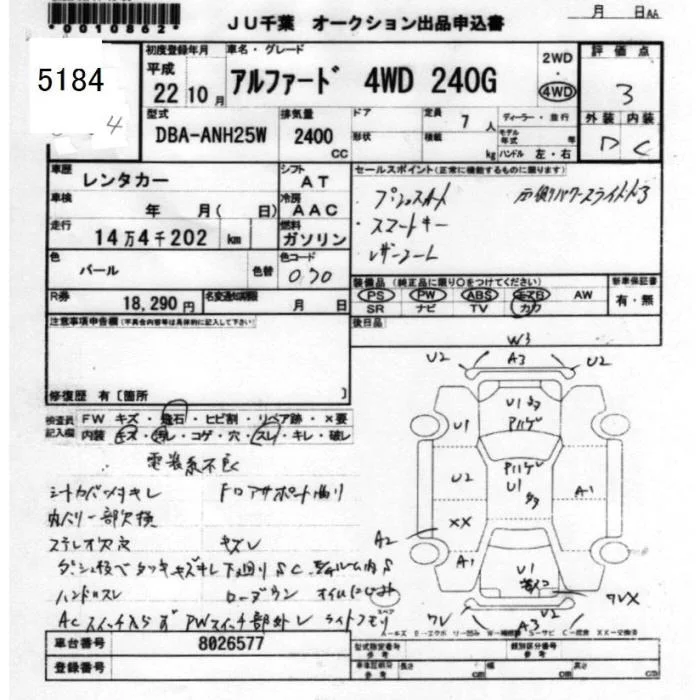 *0010862*
JU千葉 オークション出品申込書
月 日AA
5184
初度登録年月 平成 22 10 月
車名・グレード アルファード 4WD 240G
2WD ・ 4WD
評価点 3
型式 DBA-ANH25W
排気量 2400 CC
ドア 形状
定員 7 人
積載 kg
ディーラー・並行
モデル年式 年
ハンドル 左・右
外装 内装
D C
車歴 レンタカー
シフト AT
セールスポイント(正常に機能するものに限ります)
車検 年 月( 日)
冷房 AAC
プッシュスタート
スマートキー
走行 14万4千202 km
燃料 ガソリン
色 パール
色替
色コード 070
装備品 (純正品に限り○をつけてください)
PS PW ABS エアB AW
SR ナビ TV カワ
新車保証書 有・無
R券 18,290 円
名変通知期限 月 日
後日品
注意事項申告欄(不具合内容等は具体的に記入して下さい)
修復歴 有〔箇所 〕
検査員記入欄
FW キズ・飛石・ヒビ割・リペア跡・×要
内装 キズ・汚レ・コゲ・穴・スレ・キレ・破レ
電装系不良
シートカバー付キレ
フロアサポート曲り
カバー一部欠損
ステレオ欠次
キズレ
ハンドルスレ
ACスイッチ入らず PWスイッチ部外レ ライトクモリ
W3
U2 A3 U2
U1
U1
アルゲ
U2
U1
A1
XX
A2
A1
U1
ワレX
ワレ U2
A3
スペア
A=キズ E=エクボ U=凹み W=補修跡 S=サビ C=腐食 XX=交換済
車台番号 8026577
登録番号
型式指定番号 参考
類別区分番号 参考
車体証明分 参考
長さ cm 幅 cm 高さ cm